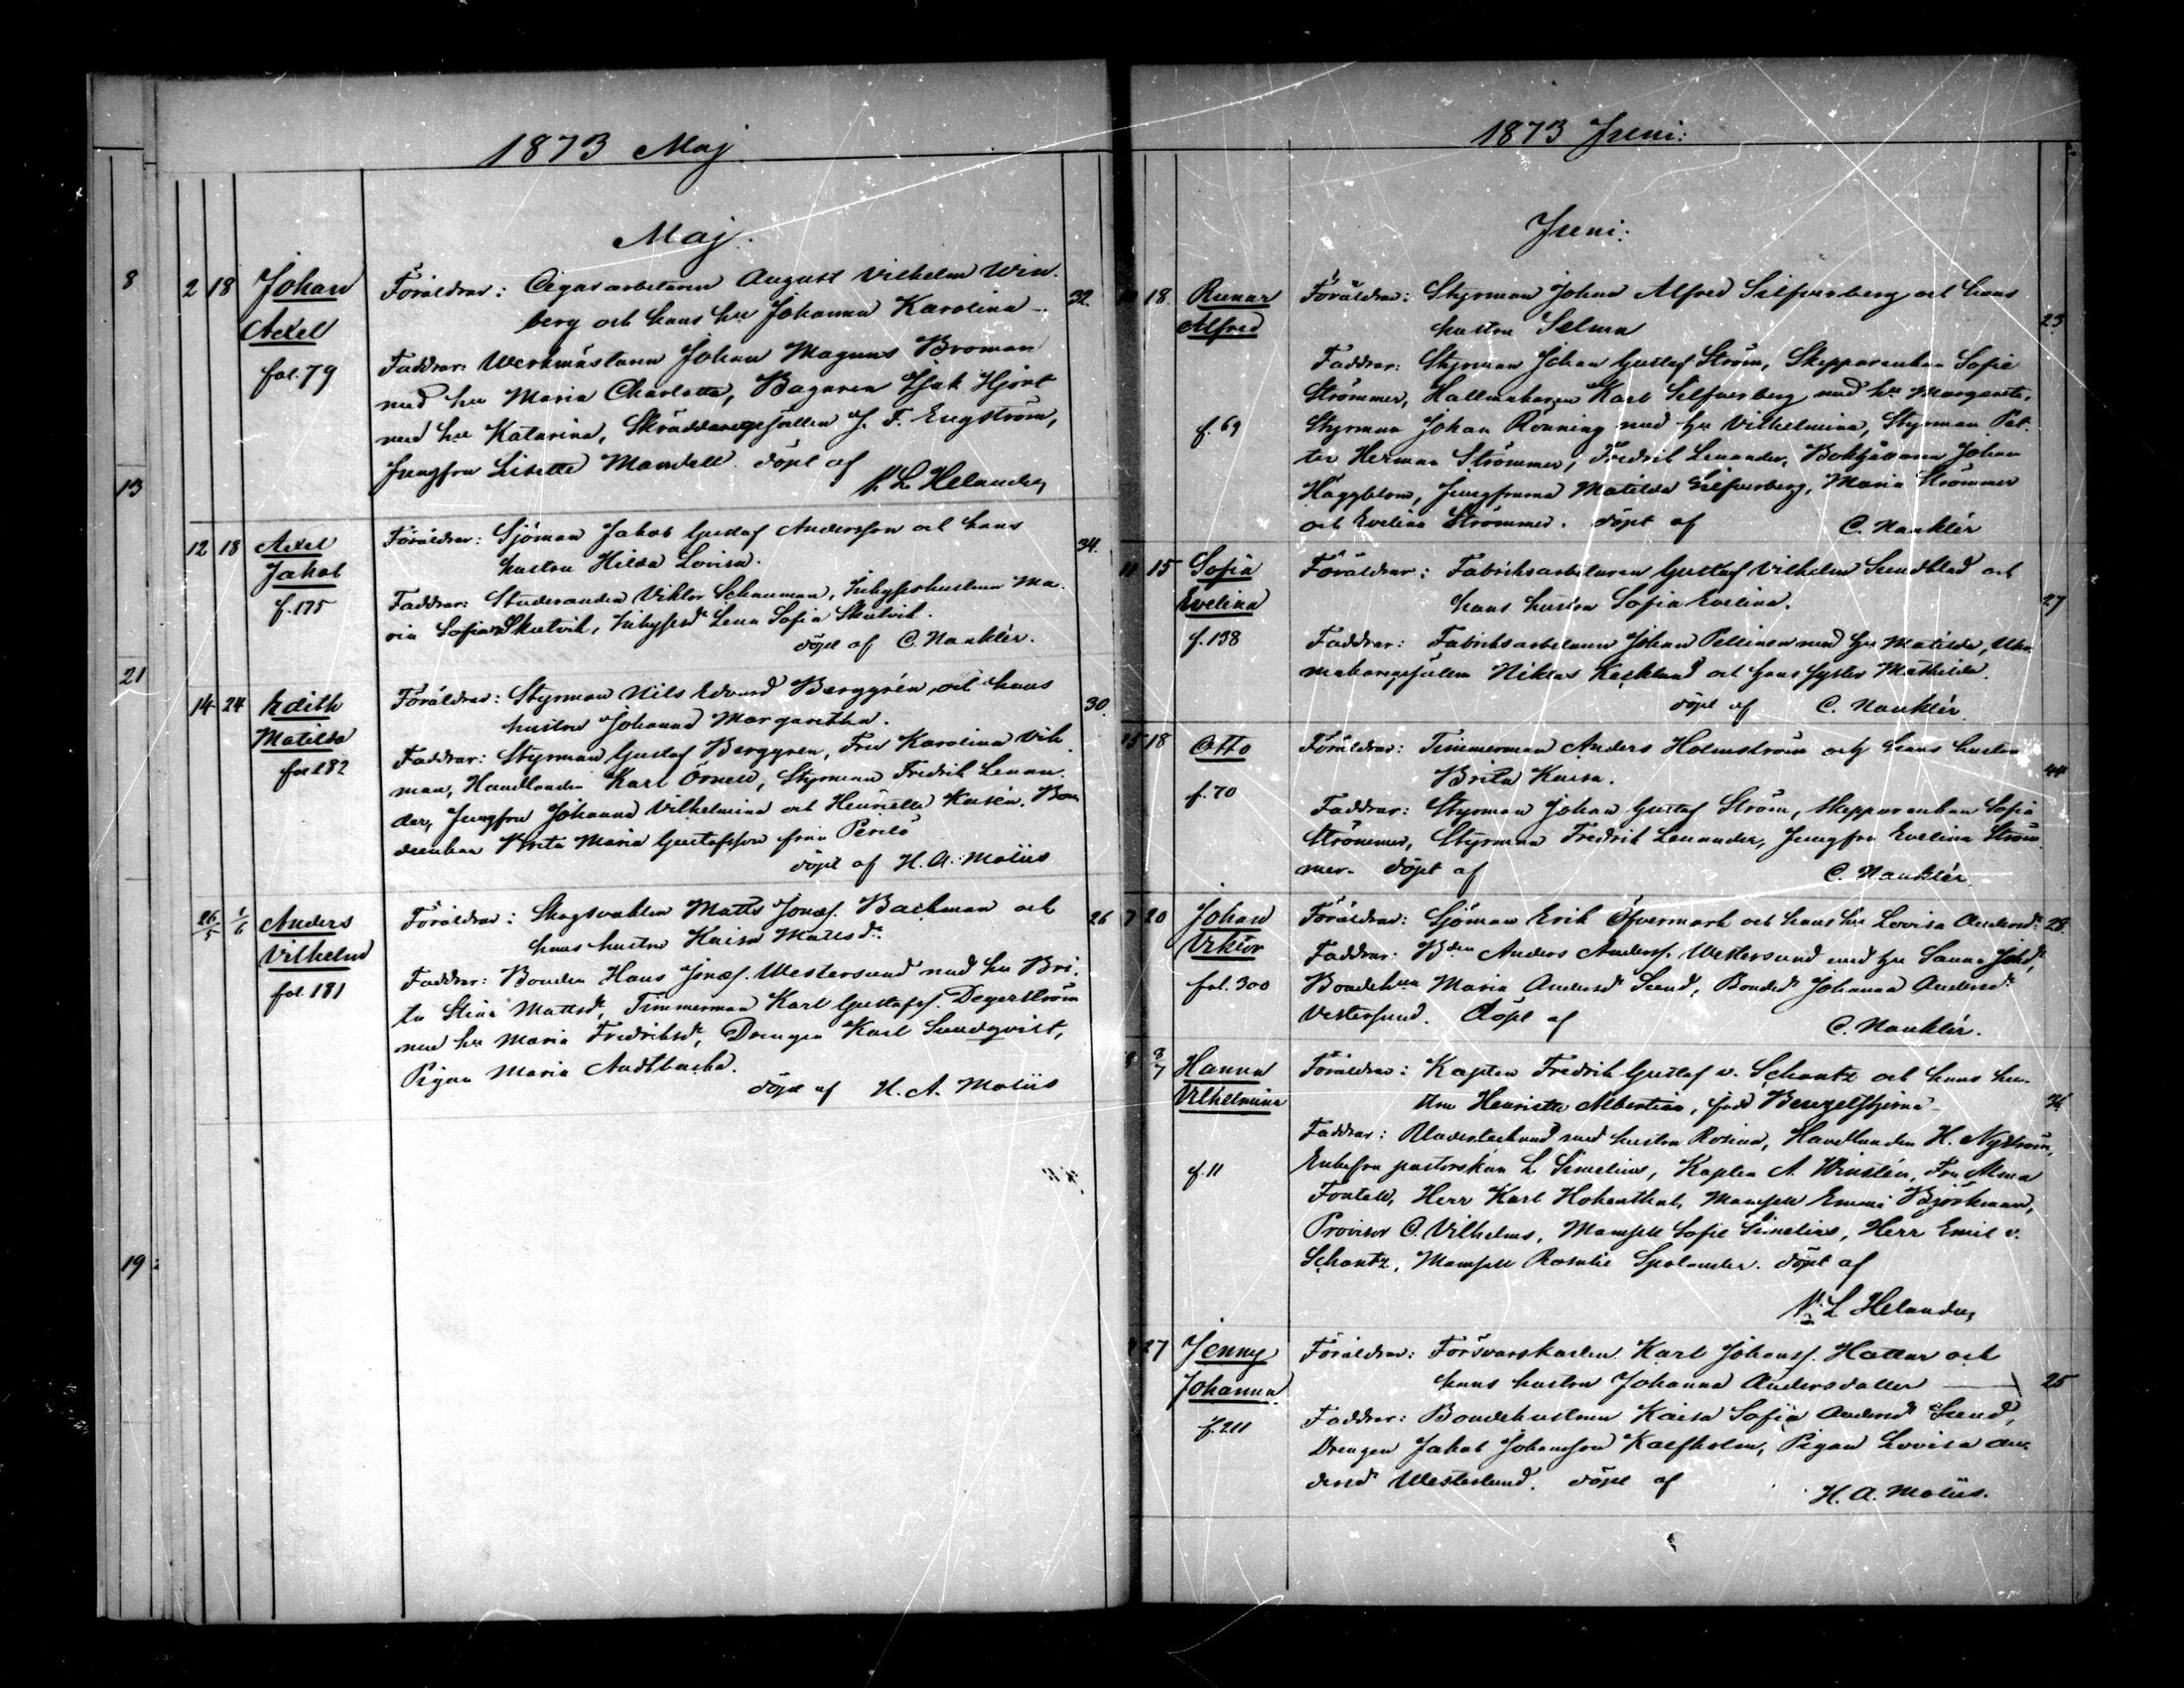 1873 Maj
Maj.
8
2 18 Johan Föräldrar: Cigararbetaren August Vilhelm Win-
berg och hans hu Johanna Karolina 32.
Axel
Faddrar: Werkmästaren Johan Magnus Broman
fol. 79
med hu Maria Charlotta, Bagaren Isak Hjort
med hu Katarina, Skräddaregesällen J. F. Engström,
Jungfru Lisette Mandell. döpt af
13
N. L. Helander
12 18 Axel Föräldrar: Sjöman Jakob Gustaf Andersson och hans 34.
Jakob hustru Hilda Lovisa.
f. 175 Faddrar: Studeranden Viktor Schauman, Inhyseshustrun Ma-
ria Sofia Skutvik, Inhysesd. Lena Sofia Skutvik.
döpt af C. Nanklér.
21
14 24 Edith Föräldrar: Styrman Nils Edvard Berggrén och hans 30.
Matilda hustru Johanna Margaretha.
fol 182 Faddrar: Styrman Gustaf Berggren, Fru Karolina Vik-
man, Handlanden Karl Örnell, Styrman Fredrik Lenan-
der, Jungfru Johanna Vilhelmina och Henriette Kasén, Bon-
denhan Brita Maria Gustafsson från Perilö
döpt af H. A. Moliis
26/5 1/6 Anders Föräldrar: Skogsvakten Matts Jonæs. Backman och 26
Vilhelm hans hustru Kaisa Mattsdr.
fol. 181 Faddrar: Bonden Hans Jonæs. Westersund med hu Bri-
ta Stina Mattsdr, Timmerman Karl Gustafss. Degerström
med hu Maria Fredriksdr, Drengen Karl Sundqvist,
Pigan Maria Andtbacka.
döpt af H. A. Moliis
19
1873 Juni:
Juni:
18. Runar Föräldrar: Styrman Johan Alfred Silfverberg och hans
Alfred hustru Selma 23.
Faddrar: Styrman Johan Gustaf Ström, Skepparenkan Sofie
Strömmer, Karl Silfverberg med hu Margareta,
f. 69 Styrman Johan Rönning med hu Vilhelmina, Styrman Pet-
ter Herman Strömmer, Fredrik Lenander, Johan
Häggblom, Jungfrurna Matilda Silfverberg, Maria Strömmer
och Evelina Strömmer. döpt af C. Nanklér
11 15 Sofia Föräldrar: Fabriksarbetaren Gustaf Vilhelm Sundblad och
Evelina hans hustru Sofia Evelina. 27
f. 138 Faddrar: Fabriksarbetaren Johan Pellinen med hu Matilda, Ur-
makaregesällen Niklas Kecklund och hans syster Mathilda.
döpt af C. Nanklér
15 18 Otto Föräldrar: Timmerman Anders Holmström och hans hustru
Brita Kaisa. 44
f. 70
Faddrar: Styrman Johan Gustaf Ström, Skepparenkan Sofia
Strömmer, Styrman Fredrik Lenander, Jungfru Evelina Ström-
mer. döpt af C. Nanklér.
7 20 Johan Föräldrar: Sjöman Erik Öfvermark och hans hu Lovisa Andersdr 28.
Viktor Faddrar: Bden Anders Anderss. Westersund med hu Sanna Johdr,
fol. 300 Bondehun Maria Andersdr Sund, Bondedr Johanna Andersdr
Vestersund. Döpt af C. Nanklér.
8/7 Hanna Föräldrar: Kapten Fredrik Gustaf v. Schantz och hans hu-
Vilhelmina stru Henrietta Albertina, född Benzelstjerna
Faddrar: med hustru Rosina, Handlanden H. Nyström,
f. 11 Enkefru pastorskan L. Simelius, Kapten A. Winstén, Fru Alma
Fontell, Herr Karl Hohenthal, Mamsell Emmi Björkman,
Provisor C. Vilhelms, Mamsell Sofie Simelius, Herr Emil v.
Schantz, Mamsell Rosalie Spolander. döpt af
N. L Helander
27 Jenny Föräldrar: Försvarskarlen Karl Johanss. Hattar och
Johanna hans hustru Johanna Andersdotter 25
f. 211 Faddrar: Bondehustrun Kaisa Sofia Andersdr Sund,
Drengen Jakob Johansson Kalfholm, Pigan Lovisa An-
dersdr Westerlund. döpt af
H. A. Moliis.